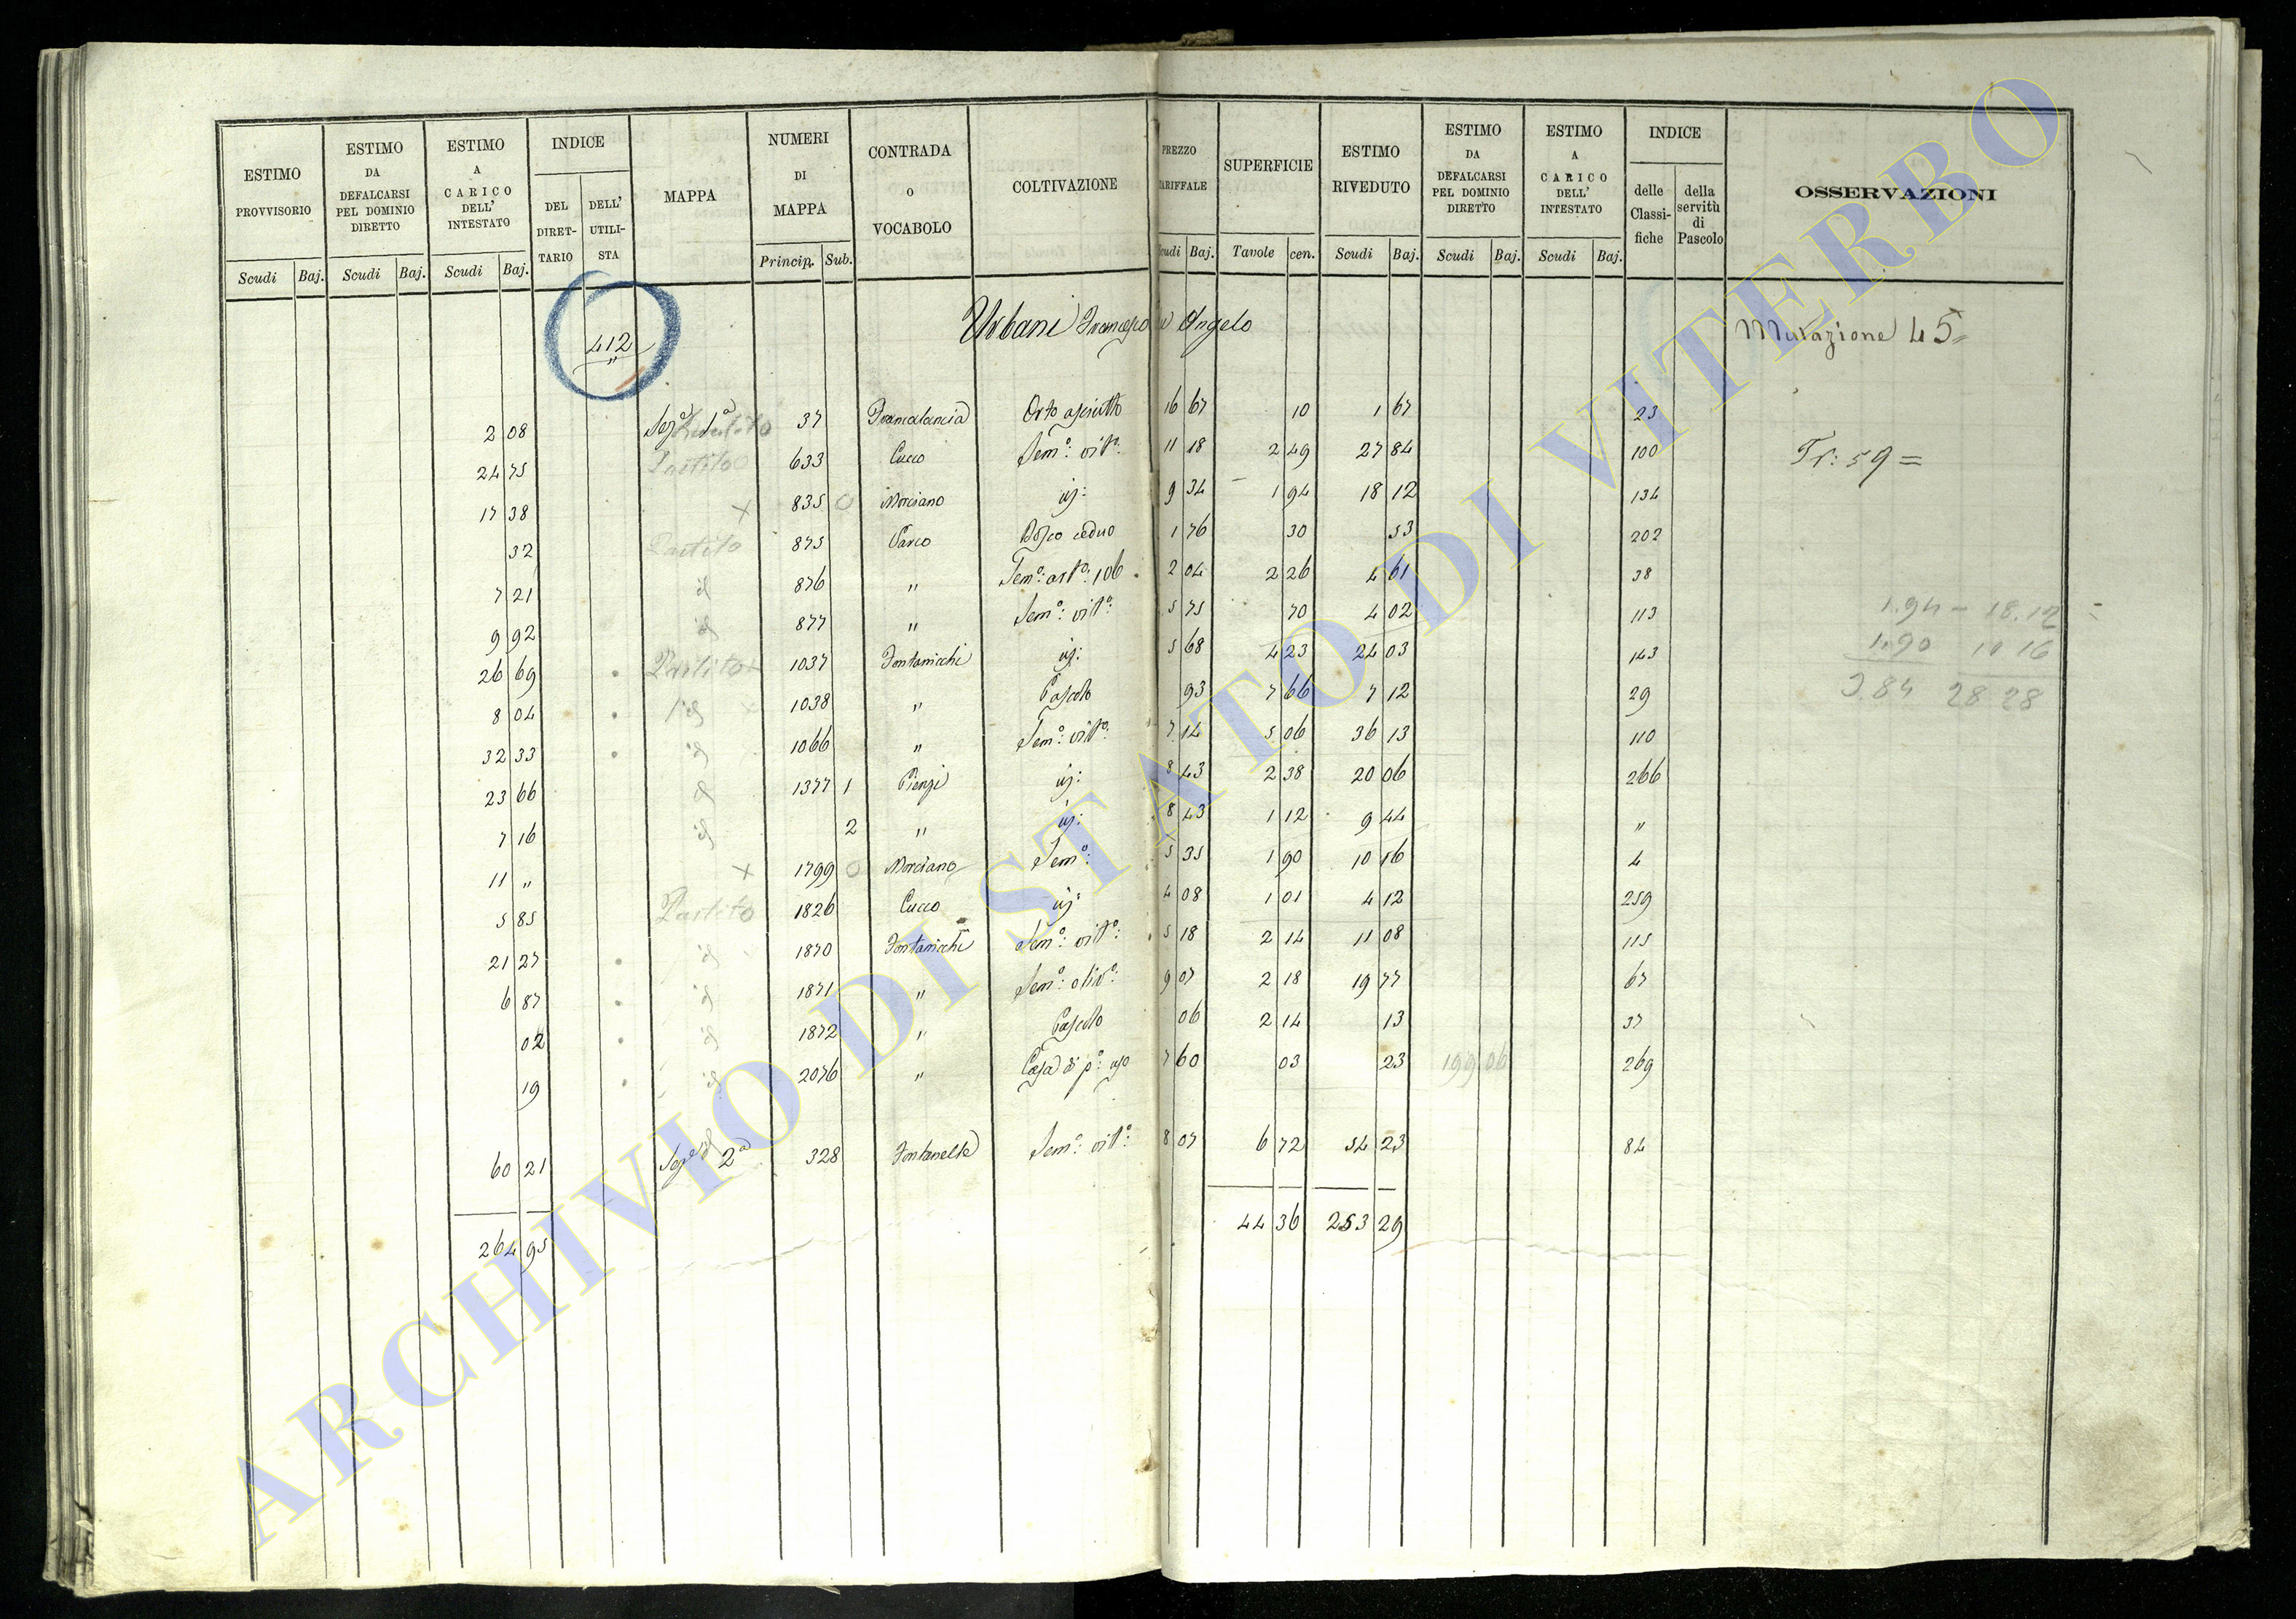 ESTIMO PROVVISORIO
ESTIMO DA DEFALCARSI PEL DOMINIO DIRETTO
ESTIMO A CARICO DELL' INTESTATO
INDICE
DEL DIRET-TARIO
DELL' UTILI-STA
MAPPA
NUMERI DI MAPPA
CONTRADA O VOCABOLO
COLTIVAZIONE
PREZZO TARIFFALE
SUPERFICIE
ESTIMO RIVEDUTO
ESTIMO DA DEFALCARSI PEL DOMINIO DIRETTO
ESTIMO A CARICO DELL' INTESTATO
INDICE
delle Classi-fiche
della servitù di Pascolo
OSSERVAZIONI
Scudi Baj. Scudi Baj. Scudi Baj. Princip. Sub. Scudi Baj. Tavole cen. Scudi Baj. Scudi Baj. Scudi Baj.
412 "
Urbani Francesco e Angelo
Mutazione 45=
2 08 Sez.e 1a 37 Francalancia Orto asciutto 16 67 10 1 67 23
24 75 Partito 633 Cucco Sem.o: vit.o: 11 18 2 49 27 84 100 Tr: 59 =
17 38 x 835 O Morciano id: 9 34 1 94 18 12 134
32 Partito 875 Parco Bosco ceduo 1 76 30 53 202
7 21 id 876 " Sem.o: 106 2 04 2 26 4 61 38
9 92 id 877 " Sem.o: vit.o: 5 75 70 4 02 113
1.94 - 18.12
26 69 Partito 1037 Fontanicchi id: 5 68 4 23 24 03 143
1.90 10 16
8 04 id 1038 " Pascolo 93 7 66 7 12 29
3.84 28 28
32 33 id 1066 " Sem.o: vit.o: 7 14 5 06 36 13 110
23 66 id 1377 1 id: 8 43 2 38 20 06 266
7 16 id 2 " id: 8 43 1 12 9 44 "
11 " x 1799 O Morciano Sem.o: 5 35 1 90 10 16 4
5 85 Partito 1826 Cucco id: 4 08 1 01 4 12 259
21 27 id 1870 Fontanicchi Sem.o: vit.o: 5 18 2 14 11 08 115
6 87 id 1871 " Sem.o: oliv.o: 9 07 2 18 19 77 67
02 id 1872 " Pascolo 06 2 14 13 37
19 id 2076 " Casa di p.o: uso 7 60 03 23 199 06 269
60 21 Sez.e 2a id 328 Fontanelle Sem.o: vit.o: 8 07 6 72 54 23 84
264 95 44 36 253 29
ARCHIVIO DI STATO DI VITERBO